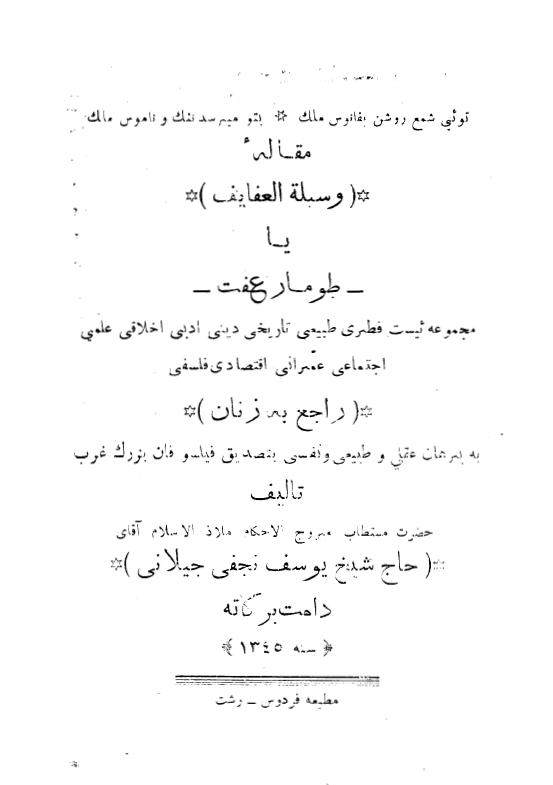 توئی شمع روشن بفانوس ملك ☼ بتو میرسد ننك و ناموس ملك
مقاله ٔ
☼( وسیلة العفایف )☼
یا
ـ طومار عفت ـ
مجموعه ئیست فطری طبیعی تاریخی دینی ادبی اخلاقی علمی
اجتماعی عمرانی اقتصادی فلسفی
☼( راجع به زنان )☼
به برهان عقلی و طبیعی ونفسی بتصدیق فیلسو فان بزرك غرب
تالیف
حضرت مستطاب مروج الاحکام ملاذ الاسلام آقای
☼( حاج شیخ یوسف نجفی جیلانی )☼
دامت برکاته
﴿ سنه ١٣٤٥ ﴾
مطبعه فردوس ـ رشت